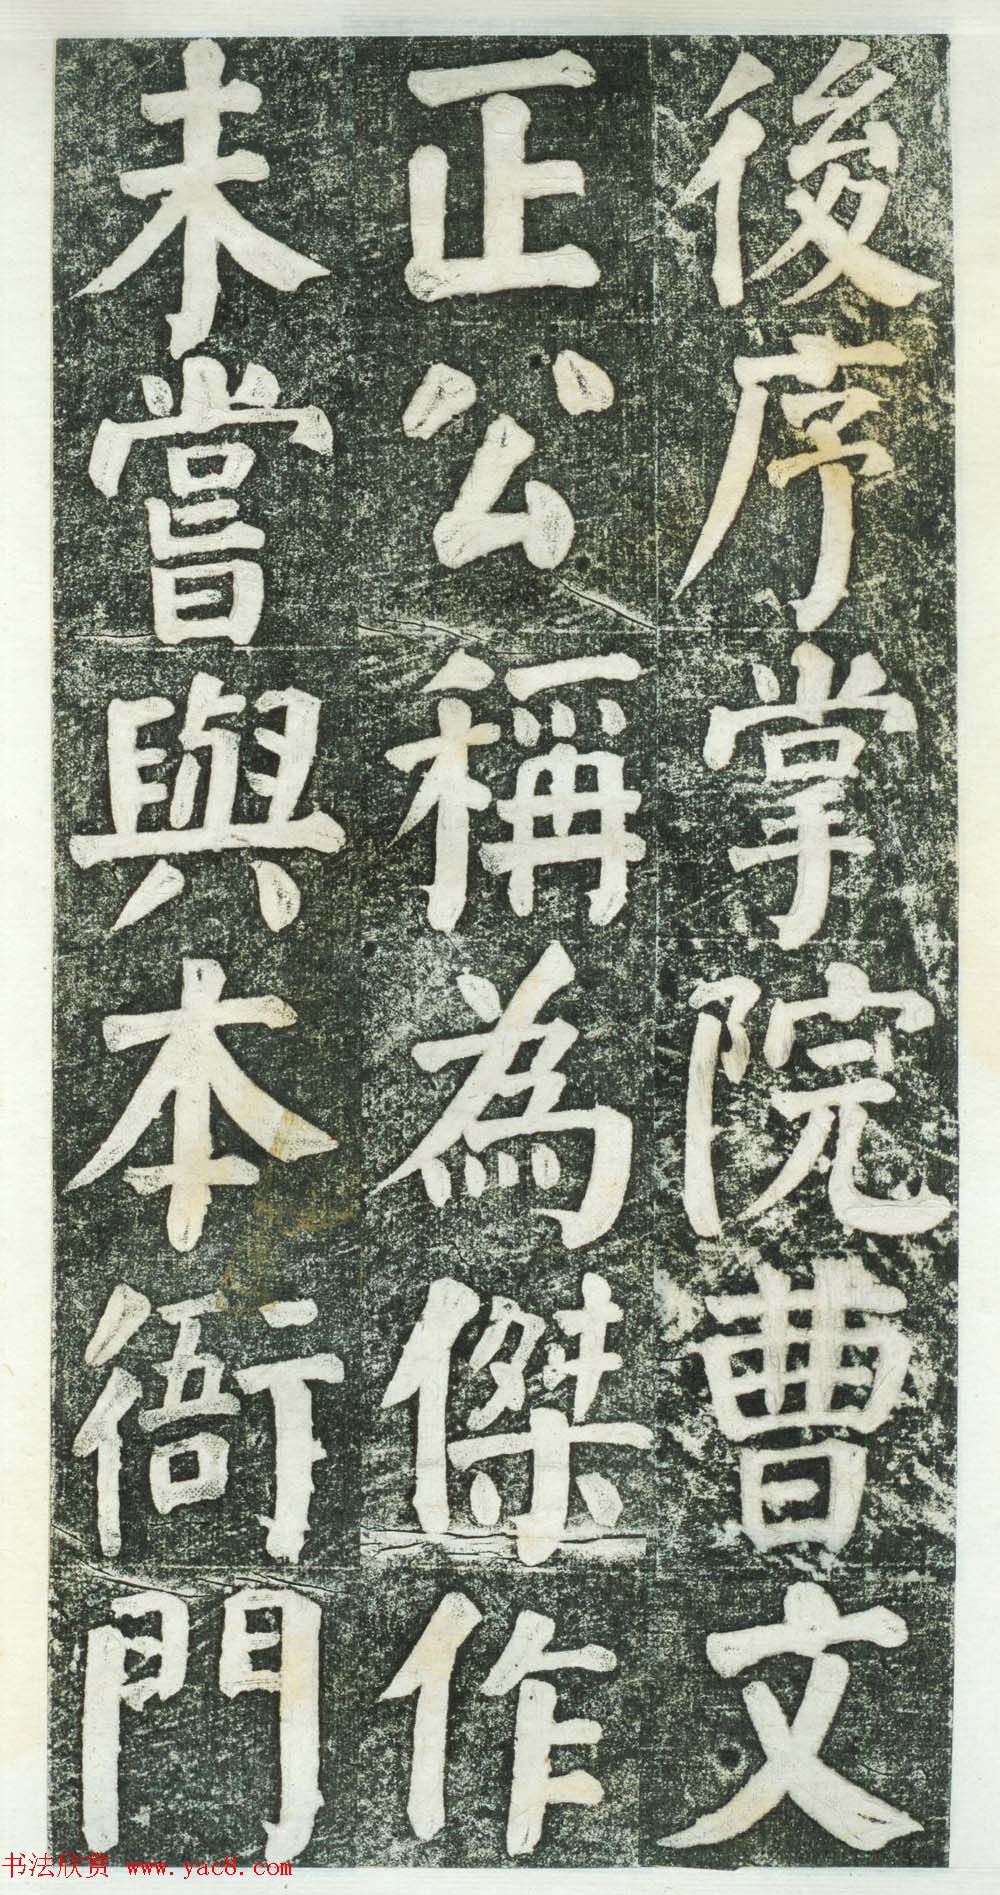 後序掌院曹文
正公稱為傑作
未嘗與本衙門
书法欣赏 www.yac8.com